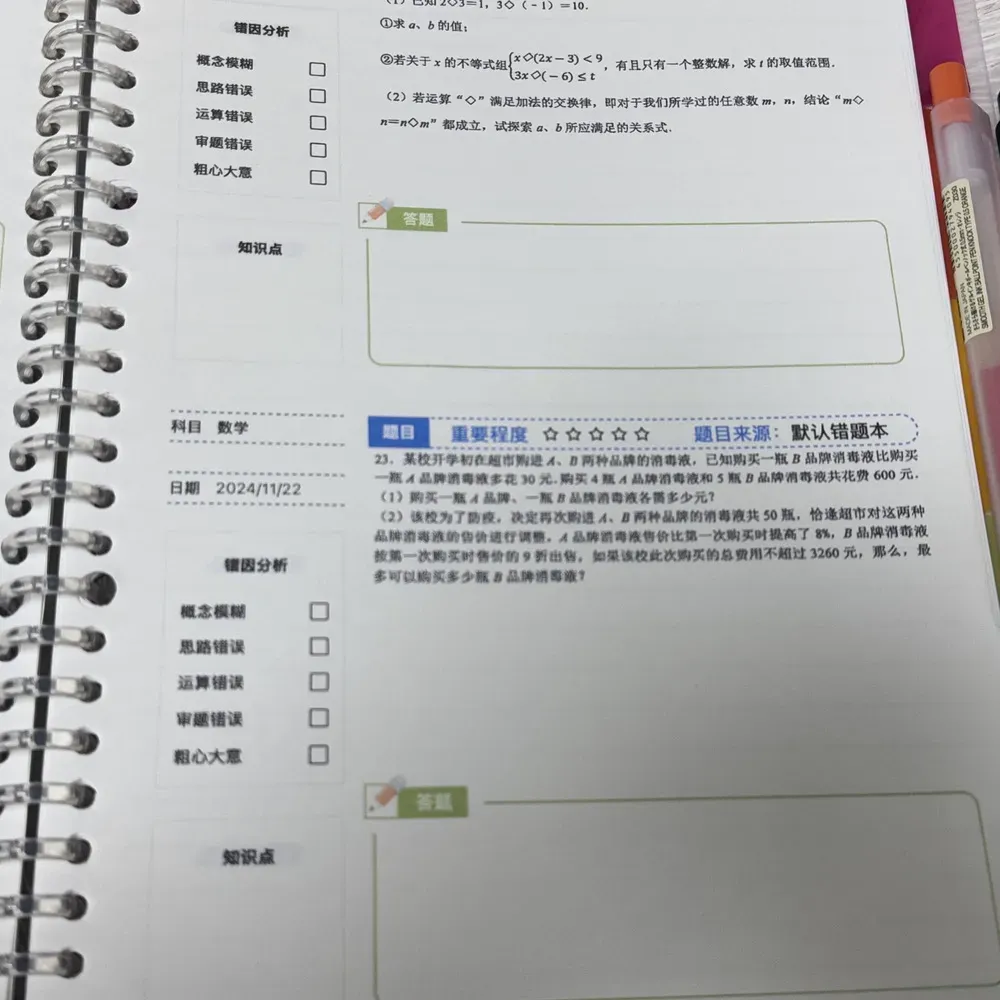 (1) 已知 2◇3=1, 3◇(-1)=10.
①求 a、b 的值;
②若关于 x 的不等式组{x◇(2x-3)<9, 3x◇(-6)≤t, 有且只有一个整数解, 求 t 的取值范围.
(2) 若运算“◇”满足加法的交换律, 即对于我们所学过的任意数 m, n, 结论“m◇
n=n◇m”都成立, 试探索 a、b 所应满足的关系式.
错因分析
概念模糊
思路错误
运算错误
审题错误
粗心大意
答题
知识点
科目 数学
日期 2024/11/22
题目 重要程度 ☆☆☆☆☆ 题目来源: 默认错题本
23. 某校开学初在超市购进 A、B 两种品牌的消毒液, 已知购买一瓶 B 品牌消毒液比购买
一瓶 A 品牌消毒液多花 30 元. 购买 4 瓶 A 品牌消毒液和 5 瓶 B 品牌消毒液共花费 600 元.
(1) 购买一瓶 A 品牌、一瓶 B 品牌消毒液各需多少元?
(2) 该校为了防疫, 决定再次购进 A、B 两种品牌的消毒液共 50 瓶, 恰逢超市对这两种
品牌消毒液的售价进行调整, A 品牌消毒液售价比第一次购买时提高了 8%, B 品牌消毒液
按第一次购买时售价的 9 折出售, 如果该校此次购买的总费用不超过 3260 元, 那么, 最
多可以购买多少瓶 B 品牌消毒液?
错因分析
概念模糊
思路错误
运算错误
审题错误
粗心大意
答题
知识点